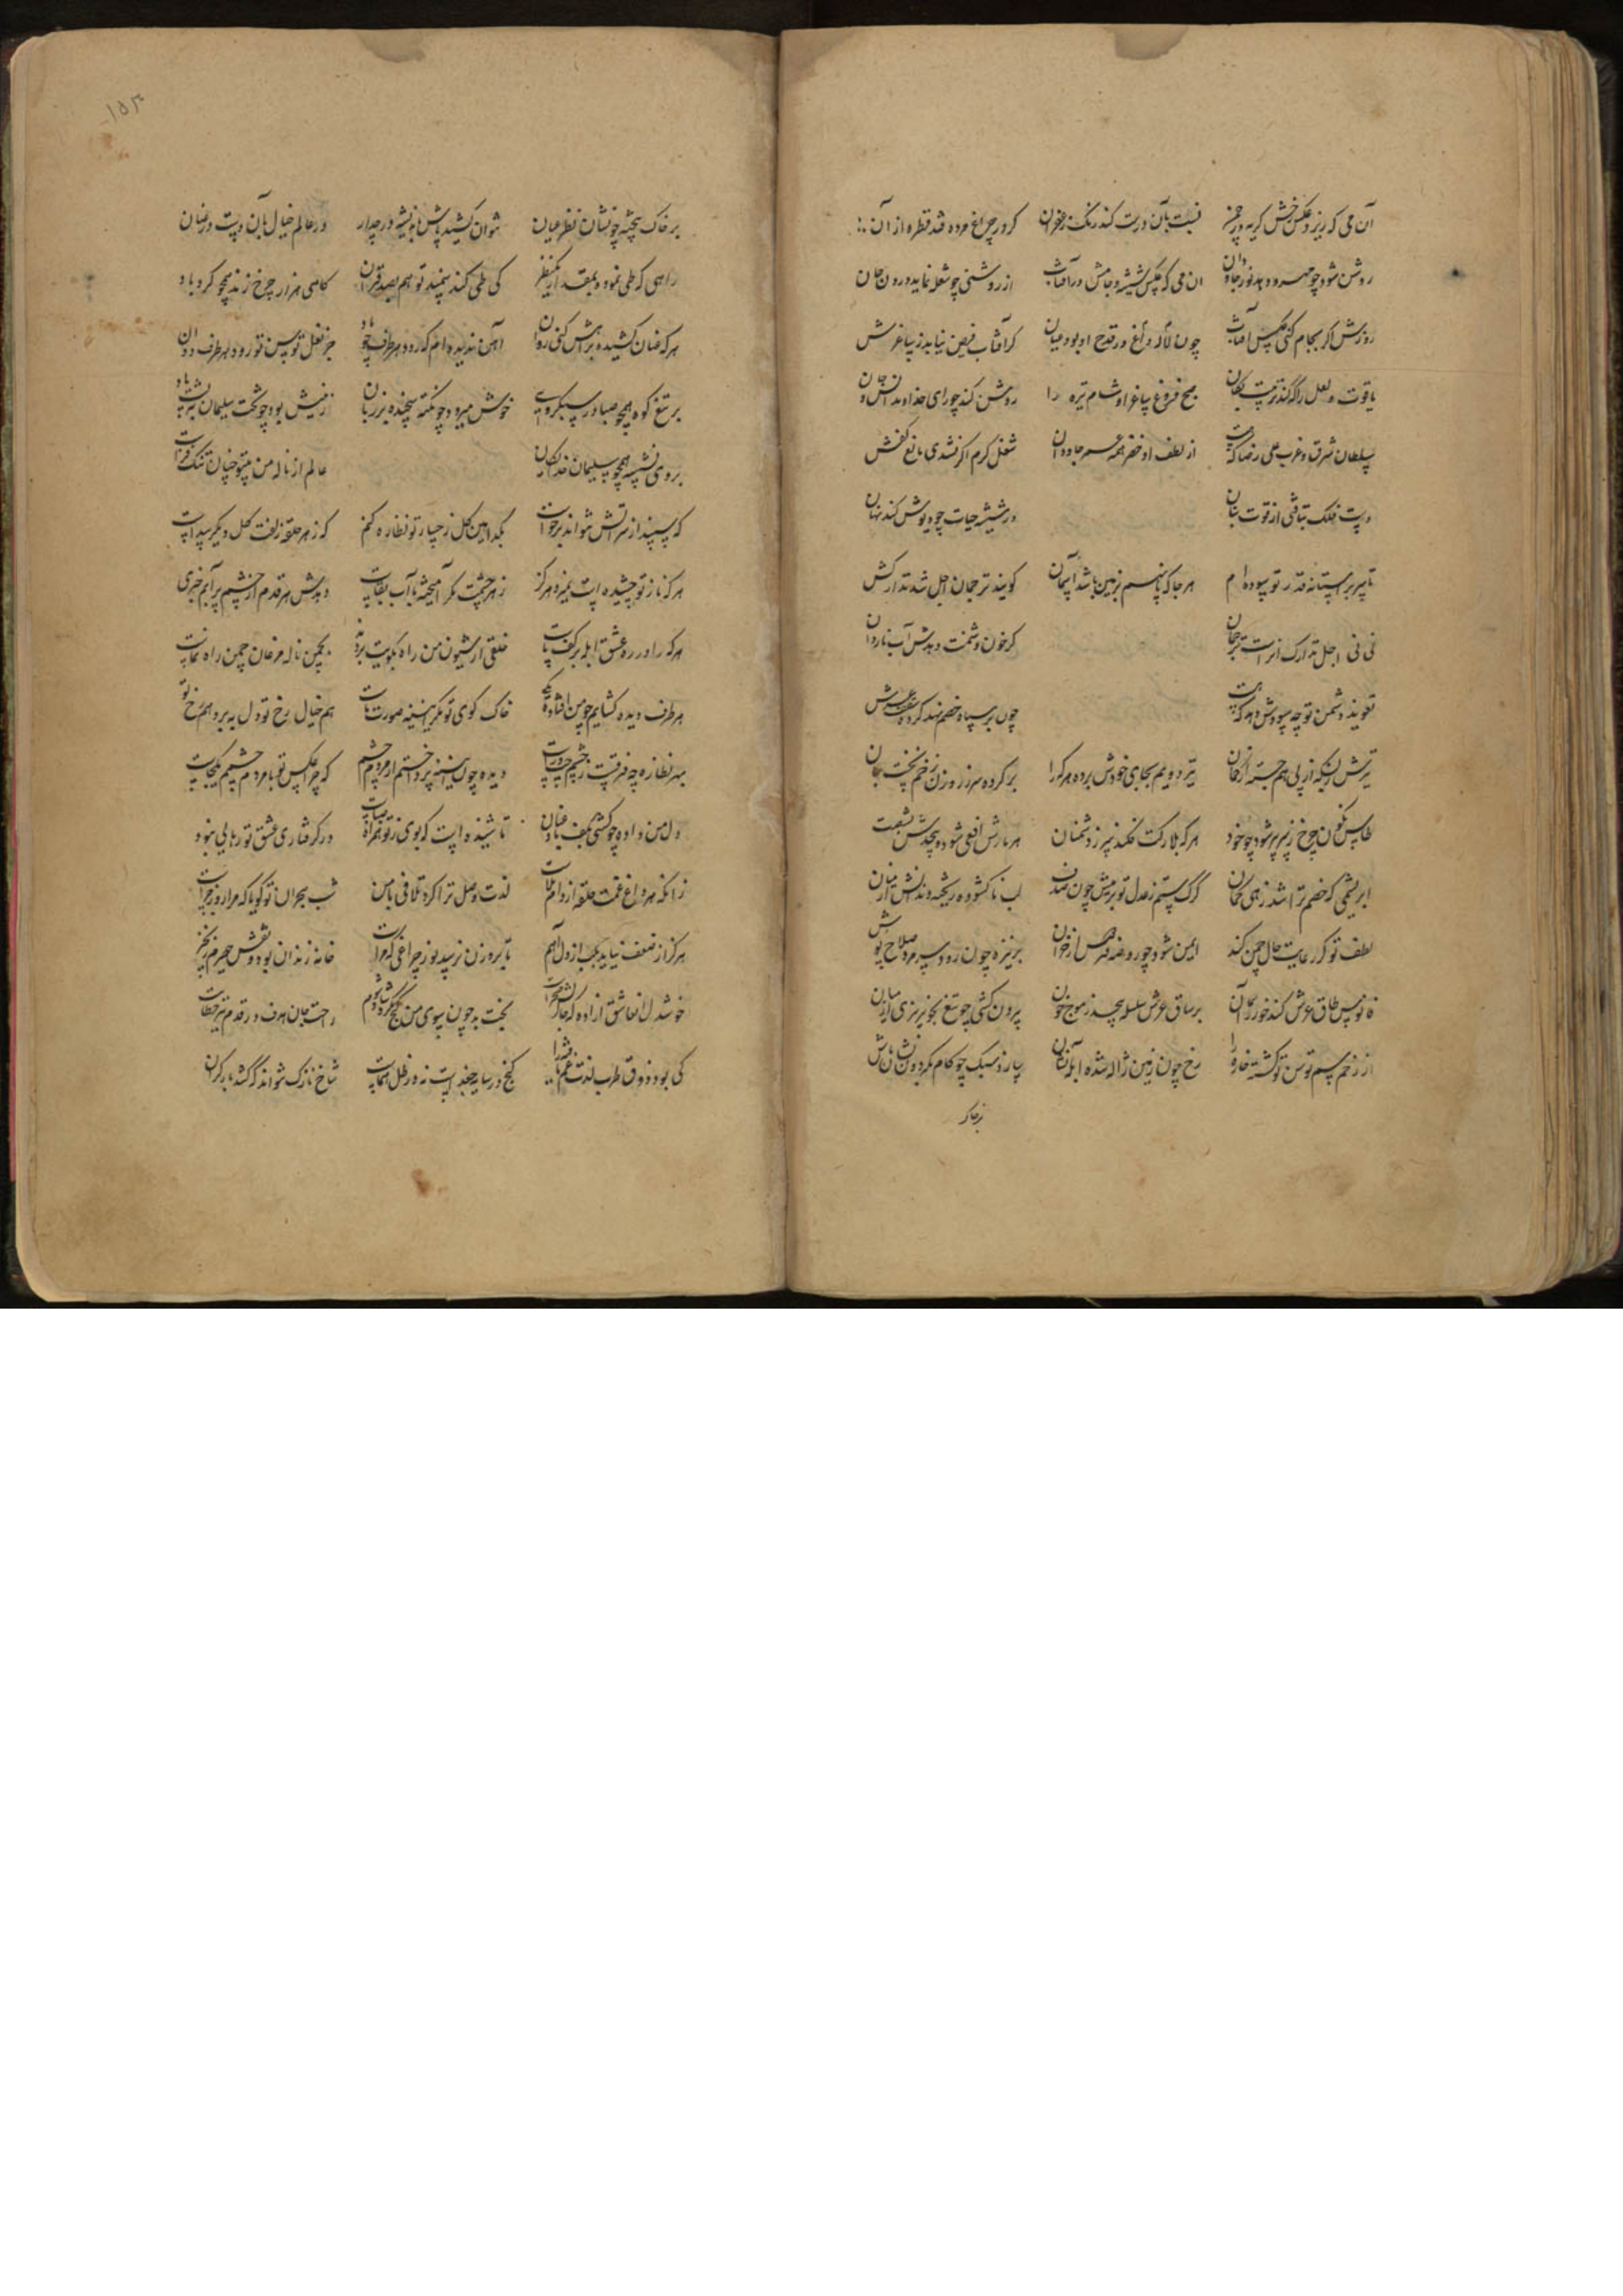 آن می که ریزد عکس رخش گر به در چمن نسبت بآن درست کند رنگ زعفران گر در چراغ مرده فتد قطره از آن
روشن شود چو مهر و دهد نور جاودان آن می که عکس شیشه و جامش در آفتاب از روشنی چو شعله نماید درون جان
روزش اگر بجام کنی عکس آفتاب چون لاله داغ در قدح او بود عیان گر آفتاب فیض نیابد ز ساغرش
یاقوت و لعل را که کند تربیت بکان صبح فروغ ساغر او شام تیره را روشن کند چو رای خداوند انس و جان
سلطان شرق و غرب علی رضا که هست از لطف او خضر همه عمر جاودان شغل کرم اگر نشدی مانع کفش
دست فلک بتافتی از قوت بنان در شیشه حیات چو دیوش کند نهان
تا سر بر آستانه قدر تو سوده ام هر جا که پا نهم بزمین باشد آسمان گویند ترجمان اجل شد تدارکش
نی نی اجل تدارک آنراست ترجمان گر خون دشمنت دهدش آب ناروان
تعویذ دشمن تو چه سودش دهد که هست چون بر سپاه خصم نهد
تیرش ز بسکه از پی هم جسته از کمان تیر دویم بجای خودش برده هر کرا بر کرده سر ز روزن زخم نخست
طاس نگون چرخ زیر پر شود چو خود هر که بلارکت فکند سر ز دشمنان هر تارش افعی شود و پیچدش بشصت
ابریشمی که خصم ترا شد زه کمان گرگ ستم ز عدل تو لب ناگشوده ریخته دندانش از میان
لطف تو گر رعایت حال چمن کند ایمن شود چو روضه فردوس از خزان بر نیزه چون رود سر مرد سلاح پوش
فانوس طاق عرش کند خور بر آن بر ساق عرش سلسله پیچد ز موج خون بیرون کشی چو تیغ بخونریزی از میان
از زخم سم توسن تو گشته خاره را رخ چون زمین ژاله شده آبله نشان سازد سبک چو گام
بر خاک
۱۵۳
بر خاک نتوان کشید پاش در عالم خیال بآن دست و عنان
راهی که طی نمود بمقدار یک نظر کی طی کند سپند تو هم بصد قران گاهی هزار چرخ زند همچو گرد باد
هر که عنان کشیده براهش کنی روان آهن ندیده ام که رود هر طرف چو باد جز نعل توسن تو رود هر طرف دوان
بر تیغ کوه همچو صبا در سبکروی خوش میرود چو نکته سنجیده بر زبان زینش بود چو تخت سلیمان به پشت باد
بر وی نشسته همچو سلیمان خدایگان عالم از ناله من بیتو چنان تنگ فضاست
که سپند از سر آتش نتواند برخاست بکدامین گل رخسار تو نظاره کنم که ز هر حلقه زلفت گل دیگر پیداست
هر که ناز تو چشیده است نمیرد هرگز زهر چشمت مگر آمیخته با آب بقاست دهدش هر قدم از چشم پر آبم خبری
هر که را در ره عشق آبله بر کف پاست خلقی از شیون من راه بکویت بردند بچمن ناله مرغان چمن راه نماست
هر طرف دیده گشایم چو من افتاده یکی خاک کوی تو مگر آینه صورت ماست هم خیال رخ تو دل برد و هم رخ تو
بهر نظاره چه فرقست ز چشم چپ و راست دیده چون آینه پرداختم از مردم چشم که چرا عکس تو با مردم چشمم یکجاست
دل من داده چو کشتی بکف باد عنان تا شنیده است که بوی ز تو همراه صباست در گرفتاری عشق تو رهایی نبود
زانکه هر داغ غمت حلقه از دام بلاست لذت وصل ترا کرد تلافی با من شب هجران تو گویا که مرا روز جزاست
هرگز از ضعف نیاید بلب از دل آهم تا بروزن نرسد نور چراغی که مراست خانه زندان بود و نقش حصیرم زنجیر
خوشدلان عاشق آزاده بخت بد چون بسوی من نگرد راحت جان هدف در قدم تیر خطاست
کی بود ذوق طرب لذت غم یافته را گنج در سایه جغد است نه در ظل هماست شاخ نازک نتواند که کشد بار گران